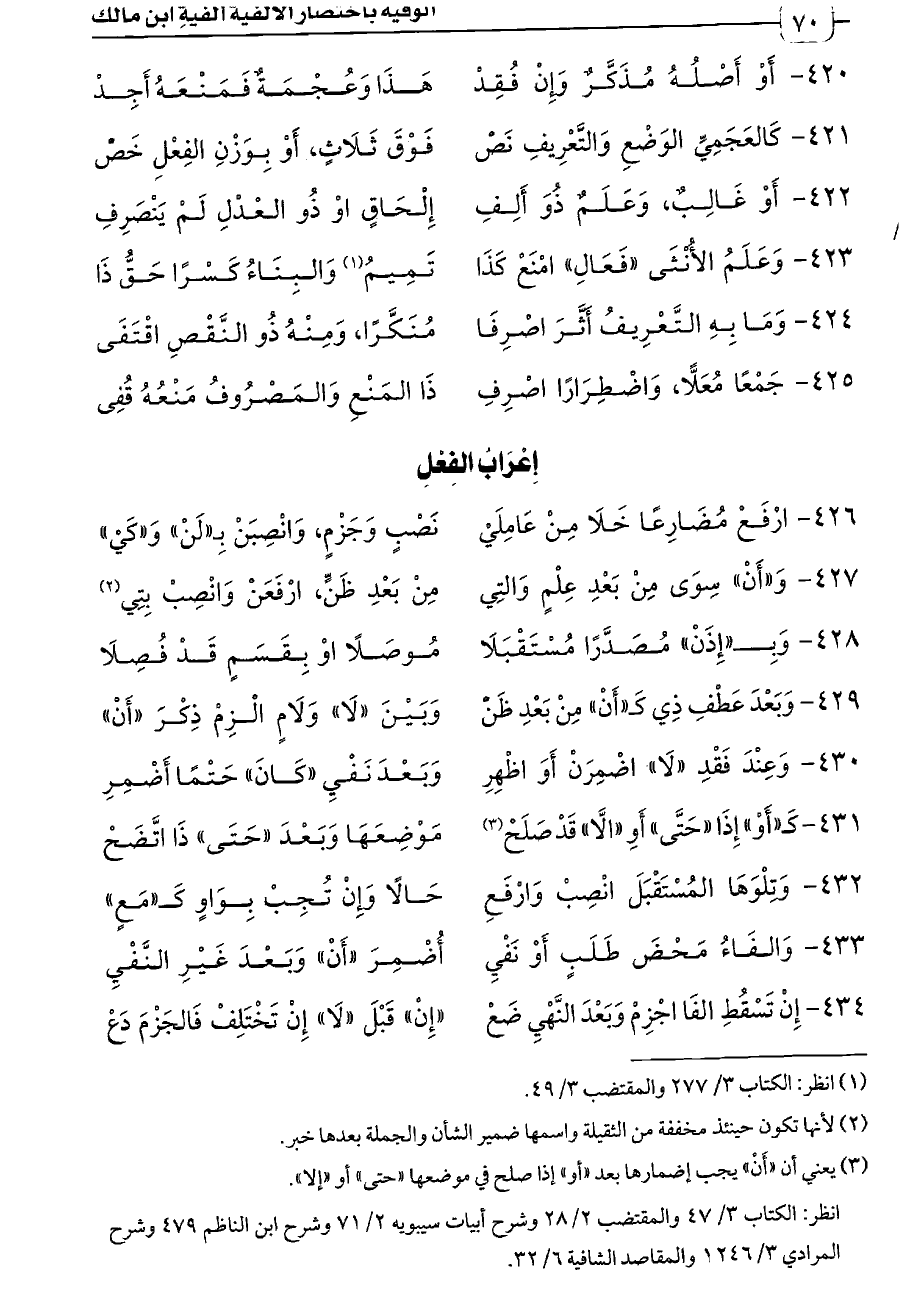 ٧٠ الوفية باختصار الألفية ألفية ابن مالك
٤٢٠- أَوْ أَصْلُهُ مُذَكَّرٌ وَإِنْ فُقِدْ هَذَا وَعُجْمَةٌ فَمَنْعَهُ أَجِدْ
٤٢١- كَالعَجَمِيِّ الوَضْعِ وَالتَّعْرِيفِ نَصْ فَوْقَ ثَلَاثٍ، أَوْ بِوَزْنِ الفِعْلِ خَصْ
٤٢٢- أَوْ غَالِبٌ، وَعَلَمٌ ذُو أَلِفِ إِلْحَاقٍ اوْ ذُو العَدْلِ لَمْ يَنْصَرِفِ
٤٢٣- وَعَلَمُ الأُنْثَى «فَعَالِ» امْنَعْ كَذَا تَمِيمُ(١) وَالبِنَاءُ كَسْرًا حَقُّ ذَا
٤٢٤- وَمَا بِهِ التَّعْرِيفُ أَثَّرَ اصْرِفَا مُنَكَّرًا، وَمِنْهُ ذُو النَّقْصِ اقْتَفَى
٤٢٥- جَمْعًا مُعَلًّا، وَاضْطِرَارًا اصْرِفِ ذَا المَنْعِ وَالمَصْرُوفُ مَنْعُهُ قُفِى
إِعْرَابُ الفِعْلِ
٤٢٦- ارْفَعْ مُضَارِعًا خَلَا مِنْ عَامِلَيْ نَصْبٍ وَجَزْمٍ، وَانْصِبَنْ بِـ«لَنْ» وَ«كَيْ»
٤٢٧- وَ«أَنْ» سِوَى مِنْ بَعْدِ عِلْمٍ وَالتِي مِنْ بَعْدِ ظَنٍّ، ارْفَعَنْ وَانْصِبْ بِتِي(٢)
٤٢٨- وَبِـ«إِذَنْ» مُصَدَّرًا مُسْتَقْبَلَا مُوصَلًا اوْ بِقَسَمٍ قَدْ فُصِلَا
٤٢٩- وَبَعْدَ عَطْفِ ذِي كَـ«أَنْ» مِنْ بَعْدِ ظَنْ وَبَيْنَ «لَا» وَلَامٍ الْزِمْ ذِكْرَ «أَنْ»
٤٣٠- وَعِنْدَ فَقْدِ «لَا» اضْمِرَنْ أَوَ اظْهِرِ وَبَعْدَ نَفْيِ «كَانَ» حَتْمًا أَضْمِرِ
٤٣١- كَـ«أَوْ» إِذَا «حَتَّى» أَوِ «الَّا» قَدْ صَلَحْ(٣) مَوْضِعَهَا وَبَعْدَ «حَتَى» ذَا اتَّضَحْ
٤٣٢- وَتِلْوَهَا المُسْتَقْبَلَ انْصِبْ وَارْفَعِ حَالًا وَإِنْ تُجِبْ بِوَاوٍ كَـ«مَعِ»
٤٣٣- وَالفَاءُ مَحْضَ طَلَبٍ أَوْ نَفْيِ أُضْمِرَ «أَنْ» وَبَعْدَ غَيْرِ النَّفْيِ
٤٣٤- إِنْ تَسْقُطِ الفَا اجْزِمْ وَبَعْدَ النَّهْيِ ضَعْ «إِنْ» قَبْلَ «لَا» إِنْ تَخْتَلِفْ فَالجَزْمَ دَعْ
(١) انظر: الكتاب ٣/ ٢٧٧ والمقتضب ٣/ ٤٩.
(٢) لأنها تكون حينئذ مخففة من الثقيلة واسمها ضمير الشأن والجملة بعدها خبر.
(٣) يعني أن «أَنْ» يجب إضمارها بعد «أو» إذا صلح في موضعها «حتى» أو «إلا».
انظر: الكتاب ٣/ ٤٧ والمقتضب ٢/ ٢٨ وشرح أبيات سيبويه ٢/ ٧١ وشرح ابن الناظم ٤٧٩ وشرح
المرادي ٣/ ١٢٤٦ والمقاصد الشافية ٦/ ٣٢.